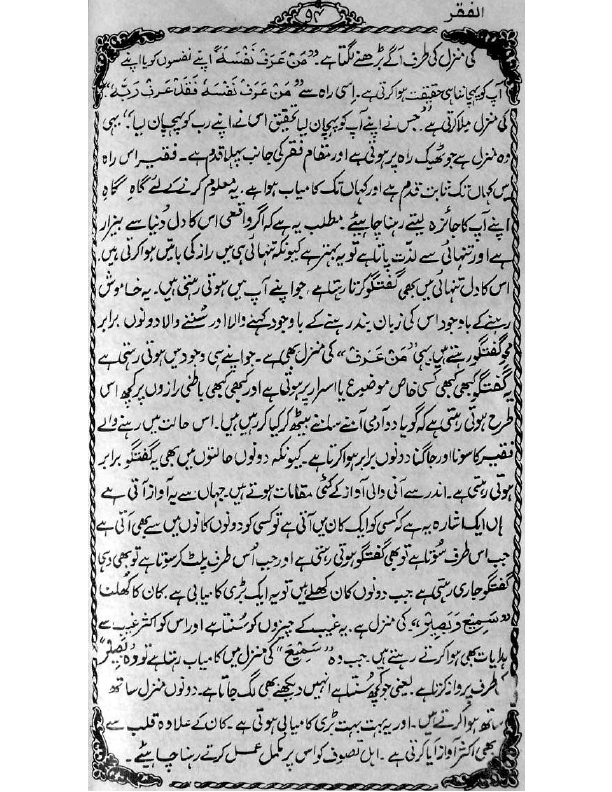 الفقر
۹۴
کی منزل کی طرف آگے بڑھنے لگتا ہے۔ "مَنْ عَرَفَ نَفْسَہٗ" اپنے نفسوں کو یا اپنے
آپ کو پہچاننا ہی حقیقت ہوا کرتی ہے۔ اِسی راہ سے "مَنْ عَرَفَ نَفْسَہٗ فَقَدْ عَرَفَ رَبَّہٗ"
کی منزل مِلا کرتی ہے "جس نے اپنے آپ کو پہچان لیا تحقیق اس نے اپنے رب کو پہچان لیا"۔ یہی
وہ منزل ہے جو ٹھیک راہ پر ہوتی ہے اور مقام فقر کی جانب پہلا قدم ہے۔ فقیر اس راہ
میں کہاں تک ثابت قدم ہے اور کہاں تک کامیاب ہوا ہے۔ یہ معلوم کرنے کے لئے گاہِ گاہِ
اپنے آپ کا جائزہ لیتے رہنا چاہیئے۔ مطلب یہ ہے کہ اگر واقعی اس کا دل دُنیا سے بیزار
ہے اور تنہائی سے لذت پاتا ہے تو یہ بہتر ہے کیونکہ تنہائی ہی میں راز کی باتیں ہوا کرتی ہیں
اس کا دل تنہائی میں بھی گفتگو کرتا رہتا ہے، جو اپنے آپ میں ہوتی رہتی ہیں۔ یہ خاموش
رہنے کے باوجود اس کی زبان بند رہنے کے باوجود کہنے والا اور سُننے والا دونوں برابر
محوِ گفتگو رہتے ہیں یہی "مَنْ عَرَفَ" کی منزل بھی ہے۔ جو اپنے ہی وجود میں ہوتی رہتی ہے
یہ گفتگو کبھی کبھی کسی خاص موضوع یا اسرار پر ہوتی ہے اور کبھی کبھی باطنی رازوں پر کچھ اس
طرح ہوتی رہتی ہے کہ گویا دو آدمی آمنے سامنے بیٹھ کر کیا کرہیں ہیں۔ اس حالت میں رہنے والے
فقیر کا سونا اور جاگنا دونوں برابر ہوا کرتا ہے۔ کیونکہ دونوں حالتوں میں بھی یہ گفتگو برابر
ہوتی رہتی ہے۔ اندر سے آنی والی آواز کے کئی مقامات ہوتے ہیں۔ جہاں سے یہ آواز آتی ہے
ہاں ایک اشارہ یہ ہے کہ کسی کو ایک کان میں آتی ہے تو کسی کو دونوں کانوں میں سے بھی آتی ہے
جب اس طرف سُوتا ہے تو بھی گفتگو ہوتی رہتی ہے اور جب اُس طرف پلٹ کر سوتا ہے تو بھی وہی
گفتگو جاری رہتی ہے جب دونوں کان کھلے ہیں تو یہ ایک بڑی کامیابی ہے۔ کان کا کُھلنا
"سَمِیْعٌ وَ بَصِیْرٌ"۔ کی منزل ہے۔ یہ غیب کے چیزوں کو سُنتا ہے اور اس کو اکثر غیب سے
ہدایات بھی ہوا کرتے رہتے ہیں۔ جب وہ "سَمِیْعٌ" کی منزل میں کامیاب رہتا ہے تو وہ "بَصِیْرٌ"
کی طرف پروانہ کرتا ہے۔ یعنی جو کچھ سُنتا ہے انہیں دیکھنے بھی لگ جاتا ہے۔ دونوں منزل ساتھ
ساتھ ہوا کرتے ہیں۔ اور یہ بہت بہت بڑی کامیابی ہوتی ہے۔ کان کے علاوہ قلب سے
بھی اکثر آواز آیا کرتی ہے۔ اہل تصوف کو اس پر مکمل عمل کرتے رہنا چاہیئے۔